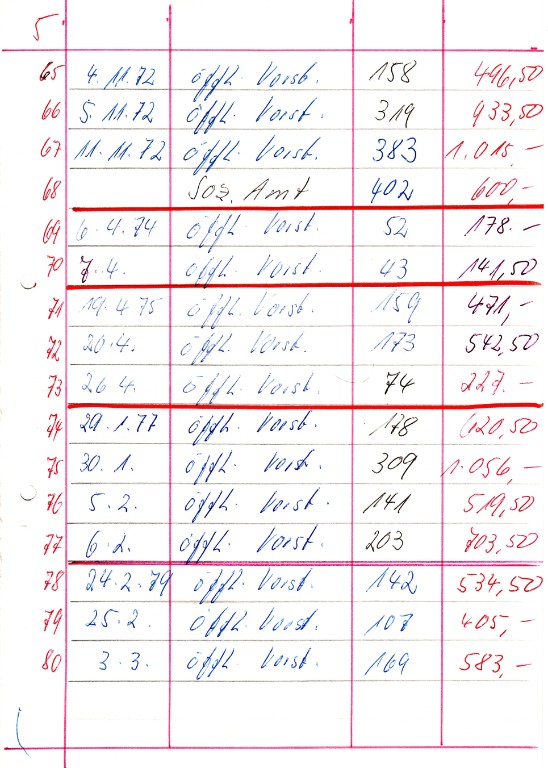 5
65 4.11.72 öffl. Vorst. 158 496,50
66 5.11.72 öffl. Vorst. 319 933,50
67 11.11.72 öffl. Vorst. 383 1.015,-
68 Soz. Amt 402 600,-
69 6.4.74 öffl. Vorst. 52 178.-
70 7.4. öffl. Vorst. 43 141,50
71 19.4.75 öffl. Vorst. 159 471,-
72 20.4. öffl. Vorst. 173 542,50
73 26.4. öffl. Vorst. 74 227.-
74 29.1.77 öffl. Vorst. 178 620,50
75 30.1. öffl. Vorst. 309 1.056,-
76 5.2. öffl. Vorst. 141 519,50
77 6.2. öffl. Vorst. 203 703,50
78 24.2.79 öffl. Vorst. 142 534,50
79 25.2. öffl. Vorst. 107 405,-
80 3.3. öffl. Vorst. 169 583,-